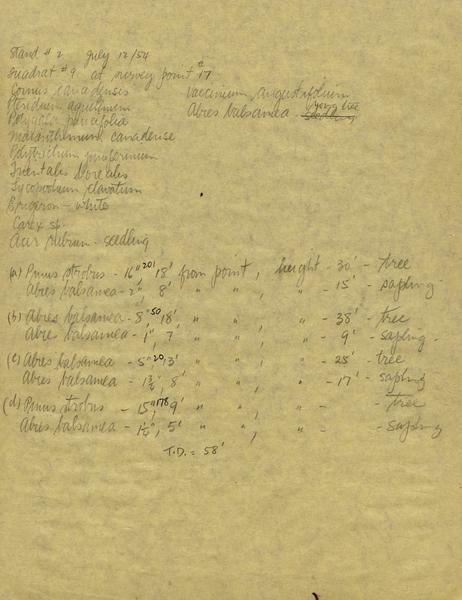 Stand # 2 July 12/54
Quadrat # 9 at survey point # 17
Cornus canadensis Vaccinium angustifolium
Pteridium aquilinum Abies balsamea young tree
Polygala paucifolia
Maianthemum canadense
Polytrichum juniperinum
Trientalis borealis
Lycopodium clavatum
Erigeron - white
Carex sp.
Acer rubrum - seedling
(a) Pinus strobus - 16" 201 18' from point, height - 30' - tree
Abies balsamea - 2", 8' " " , " - 15' - sapling
(b) Abies balsamea - 8" 50 18' " " , " - 38' - tree
Abies balsamea - 1", 7' " " , " - 9' - sapling
(c) Abies balsamea - 5" 20, 13' " " , " - 25' - tree
Abies balsamea - 1½", 8' " " , " - 17' - sapling
(d) Pinus strobus - 15", 178 9' " " , " - - tree
Abies balsamea - 1½", 5' " " , " - sapling
T.D. = 58'